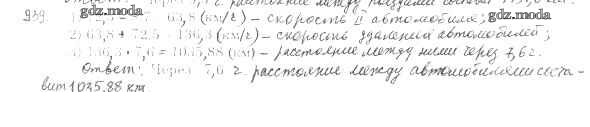 расстояние между
gdz.moda gdz.moda
939. 63,8 (км/ч) – скорость II автомобиля;
2) 63,8 + 72,5 = 136,3 (км/ч) – скорость удаления автомобилей;
3) 136,3 • 7,6 = 1035,88 (км) – расстояние между ними через 7,6 ч.
Ответ: Через 7,6 ч. расстояние между автомобилями соста-
вит 1035.88 км